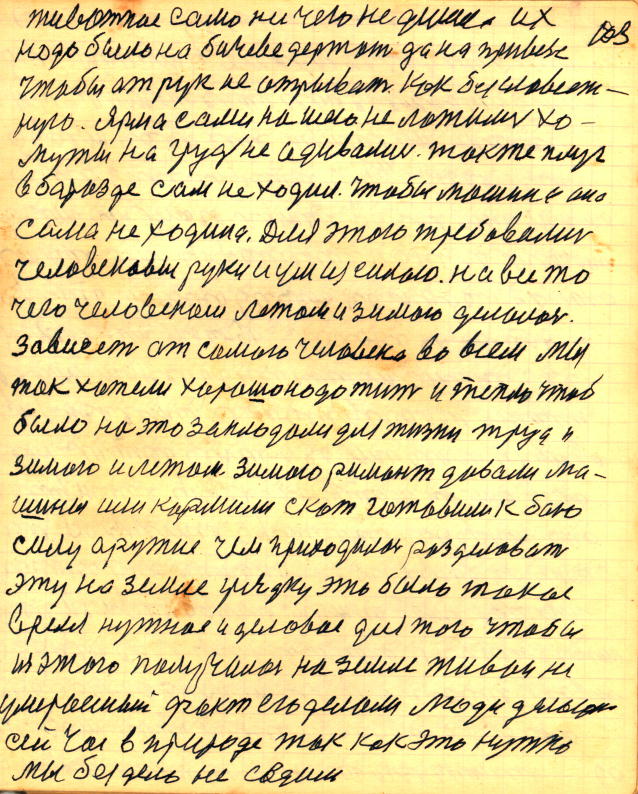 животное само ни чего не дише их 103
надо было на бичеве держат да на привезе
чтобы от рук не отрыват. Как бы словест-
ного. Ярма сами на шею не ложили хо-
муты на груд не адивали. также плуг
в баразде сам не ходил. чтобы машина она
сама не ходила. Для этого требовалис
человековы руки и ум и силою. на все то
чего человеком летом и зимою делалос.
Зависет от самого человека во всем мы
так хатели харашо надо жит и тепло чтоб
было на это закладоли для жизни труд и
зимою и летом зимою римонт довали ма-
шины или кормили скот готовили к баю
силу аружие чем приходилос разделоват
эту на земле грядку это было такое
время нужное и деловое для того чтобы
из этого получалос на земле живои не
умерший факт его делали люди делают
сей час в природе так как это нужно
мы без дела не седим